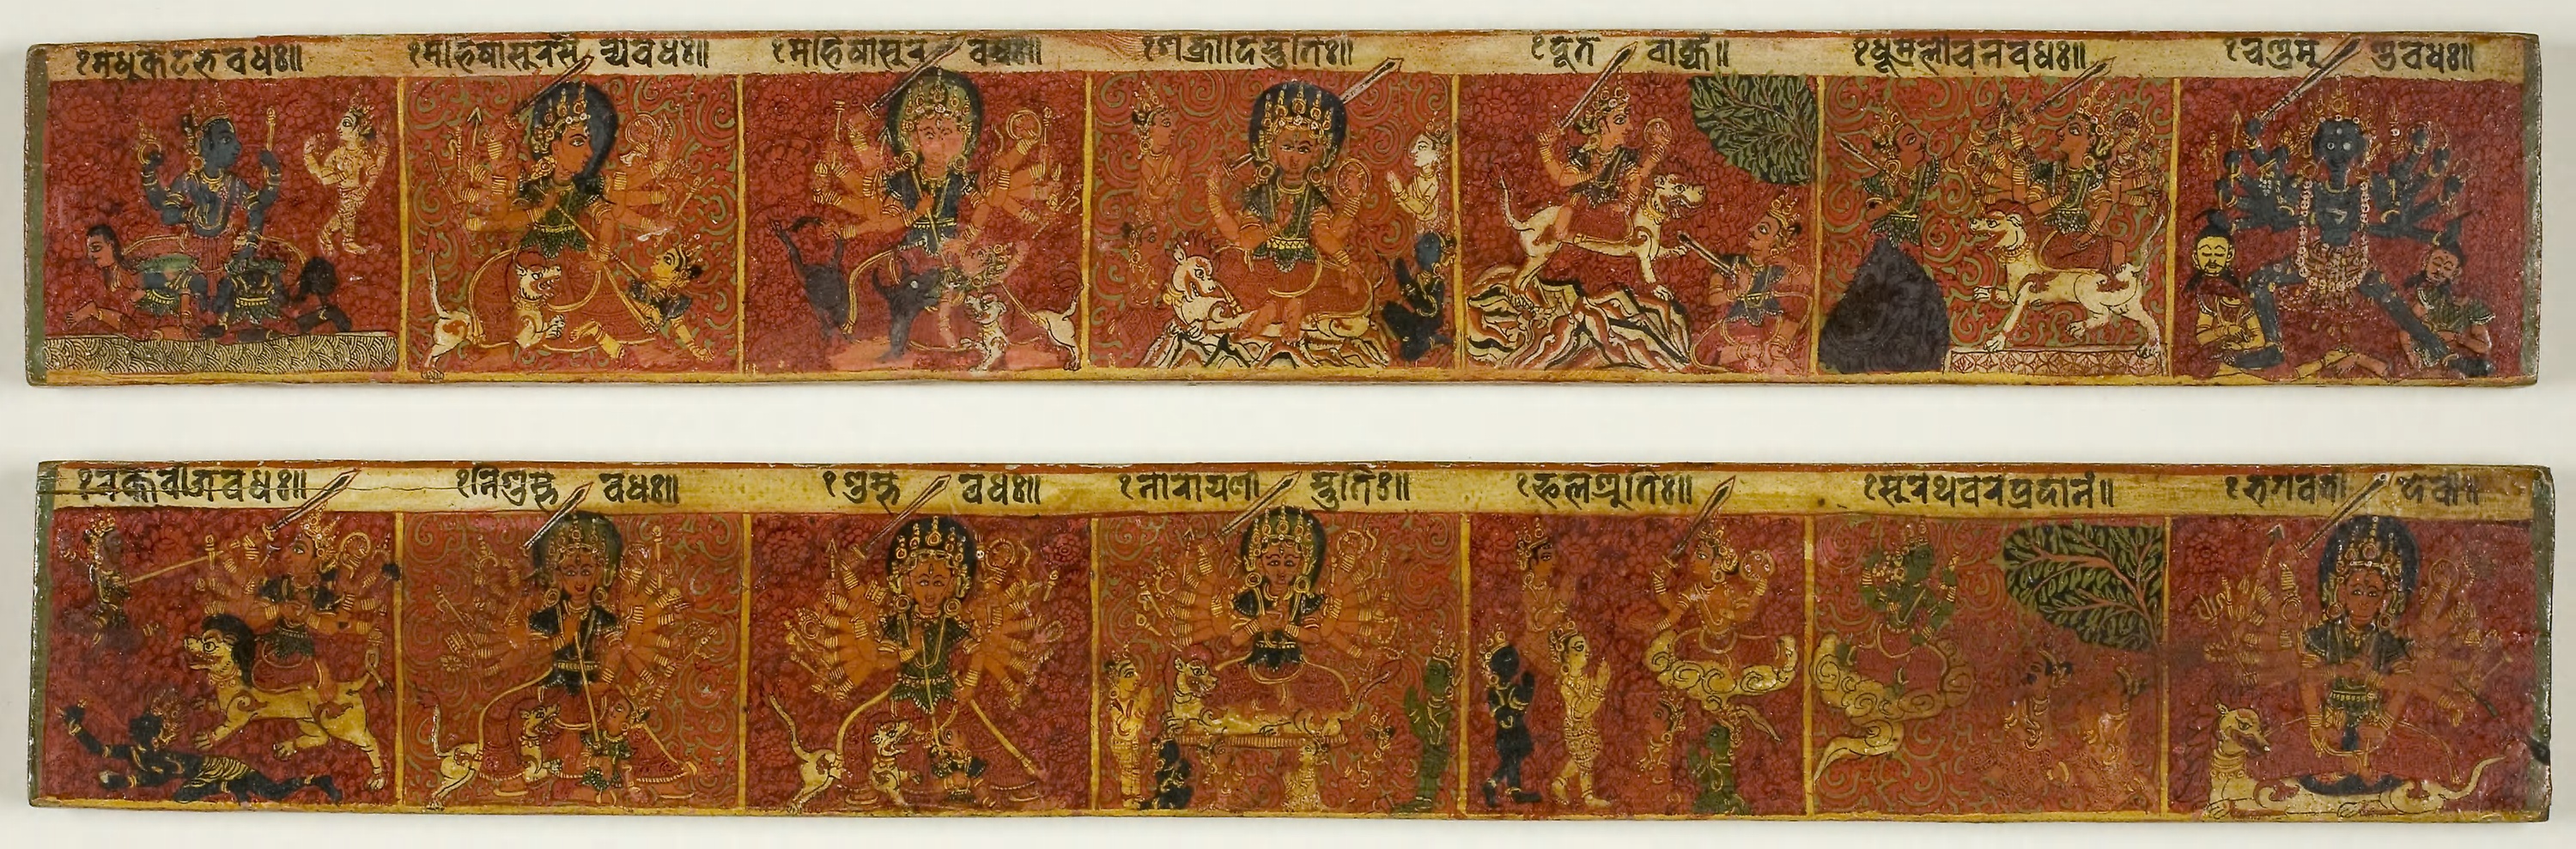 १मधुकैटभवधः॥ १महिषासुरसैन्यवधः॥ १महिषासुर वधः॥ १शक्रादिस्तुतिः॥ १दूत वाक्यं॥ १धूम्रलोचनवधः॥ १चण्डमु ण्डवधः॥
१रक्तबीजवधः॥ १निशुम्भ वधः॥ १शुम्भ वधः॥ १नारायणी स्तुतिः॥ १फलश्रुतिः॥ १सुरथवरप्रदानं॥ १भगवती